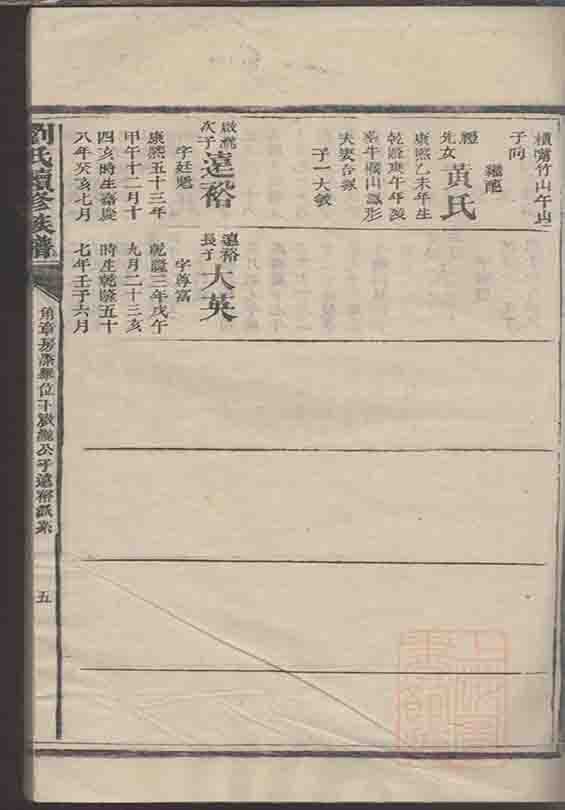 橫窩竹山午山
子向
繼配
禮
光女 黃氏
康熙乙未年生
乾隆庚午年
牛 山 形
夫妻合
子一大
啟
次子 遠裕
字廷
康熙五十三年
甲午十二月十
四亥時生嘉慶
八年癸亥七月
遠裕
長子 大英
字尊富
乾隆三年戊午
九月二十三亥
時生乾隆五十
七年壬子六月
劉氏續修族譜
角章房 位下 公子遠裕派系
五